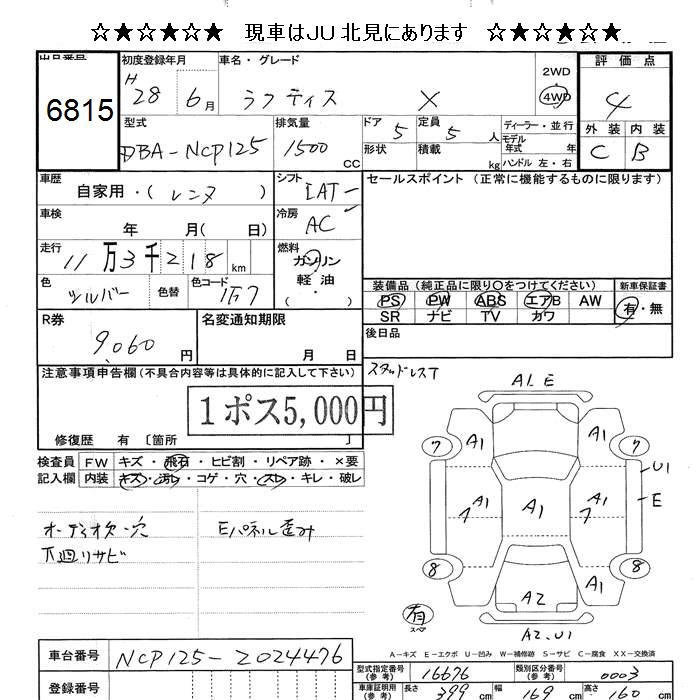 ☆★☆★☆★☆ 現車はJU北見にあります ☆★☆★☆★☆
出品番号 6815
初度登録年月 H 28年 6月
車名・グレード ラクティス X
2WD 4WD
評価点 4
外装 C 内装 B
型式 DBA-NCP125
排気量 1500 cc
ドア 5 形状
定員 5 人 積載 kg
ディーラー・並行
モデル年式 年
ハンドル 左・右
車歴 自家用・(レンヌ)
シフト IAT
セールスポイント (正常に機能するものに限ります)
車検 年 月( 日)
冷房 AC
走行 11万3千218 km
燃料 ガソリン・軽油・( )
色 シルバー 色替 色コード 1F7
装備品(純正品に限り○をつけてください) 新車保証書
PS PW ABS エアB AW 有・無
SR ナビ TV カワ
R券 9,060 円
名変通知期限 月 日
後日品
スタッドレスT
注意事項申告欄(不具合内容等は具体的に記入して下さい)
1ポス5,000円
修復歴 有〔箇所 〕
検査員記入欄
FW キズ・飛石・ヒビ割・リペア跡・×要
内装 キズ・汚レ・コゲ・穴・スレ・キレ・破レ
オーディオ欠・穴
下廻りサビ
Eパネル歪み
A1.E
A1 A1
7 7
U1
E
A1 A1 A1
7 7
8 8
A1
A2
A2.U1
有 スペア
A-キズ E-エクボ U-凹み W-補修跡 S-サビ C-腐食 XX-交換済
車台番号 NCP125-2024476
登録番号
型式指定番号(参考) 16676
類別区分番号(参考) 0003
車庫証明用(参考) 長さ 399 cm 幅 169 cm 高さ 160 cm